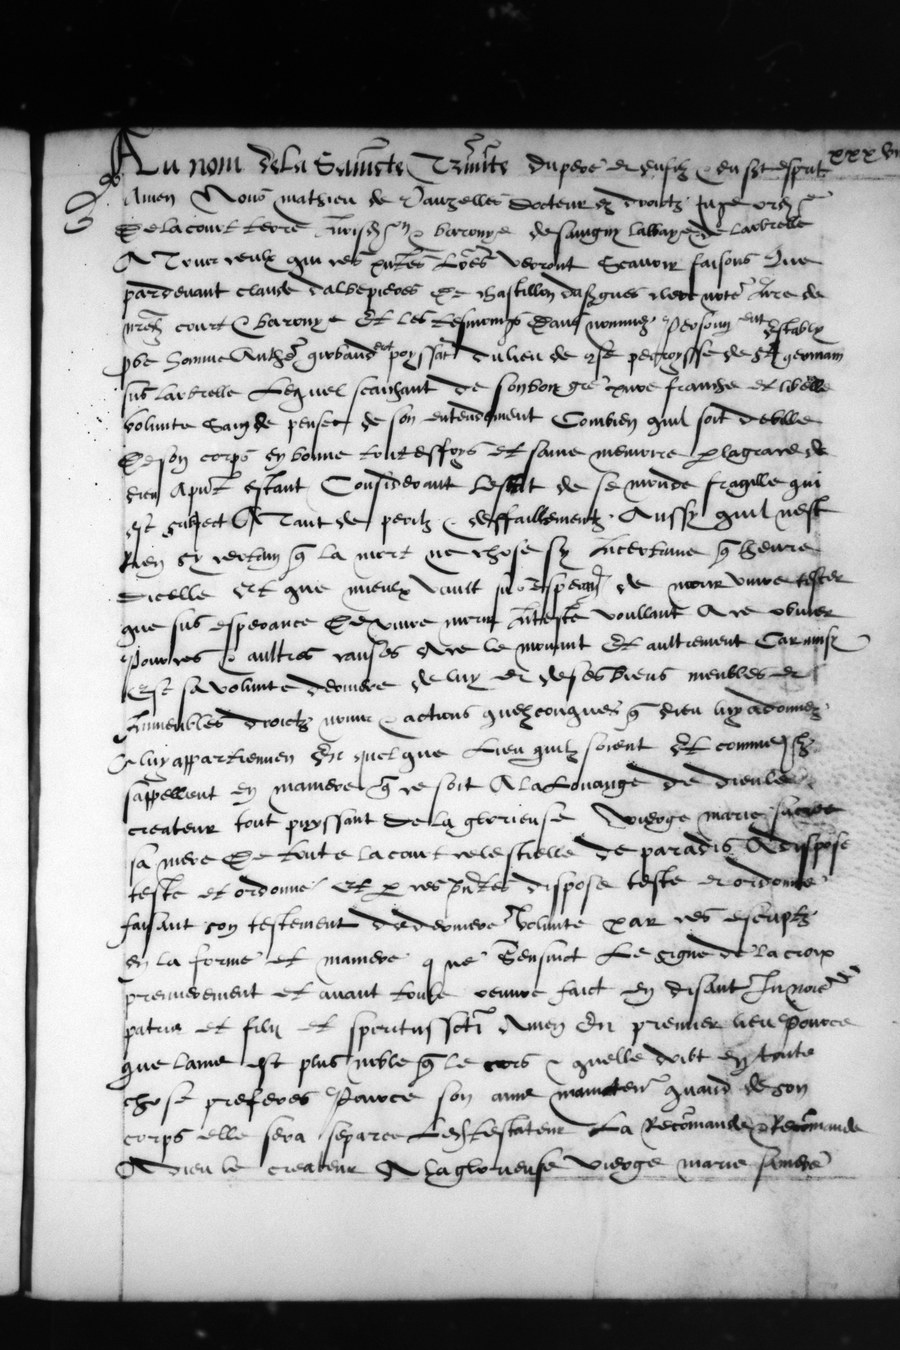 Au nom de la Saincte Trinite du pere et du filz & du sainct esperit xxxvii
Amen Nous mathieu de Vauzelles docteur es droictz Juge ord.re
De la court terre Jurisd.on & baronye de savigny labbaye de larbrelle
A Tous ceulx qui ces pntes lres verront Scavoir faisons Que
pardevant claude dalbepierre Et Chastillon notre Jure de
nred. court & baronye Et les tesmoings dans nommez Personnellement estably
honne Anthe poyssat du lieu de perroysse de St germain
sus larbrelle Lequel scaichant de son bon gre pure franche et liberalle
volunte Sain de pensee de son entendement Combien quil soit debille
De son corps en bonne touteffoys et saine memoire p la grace de
dieu Apnt estant Considerant lestat de se monde fragille qui
est subject A Tant de perilz & deffaillementz Aussy quil nest
Rien sy certain q la mort ne chose sy Incertaine q lheure
dicelle Et que mieulx vault de mort vivre tester
que sus esperance De vivre morir Intestat voullant A ce obvier
Pour ces & aultres causes A ce le mouvant Et aultrement Car ainsy
Est sa volunte derniere de luy et de ses biens meubles et
Immeubles droictz noms & actions quelzconques q dieu luy a donnez
& luy appartiennen En quelque Lieu quilz soient Et comme quilz
sappellent en maniere q ce soit A la Louange de dieu le
createur tout puyssant De la glorieuse vierge marie sacree
sa mere De toute la court celestielle de paradis A dispose
teste et ordonne Et p ces pntes dispose teste et ordonne
faisant son testement De derniere volunte par ces escriptz
En la forme et maniere que Sensuict Le signe de la croix
premierement et avant toute oeuvre faict en disant In noie
patris et filii et spiritus scti Amen En premier lieu Pource
que lame est plus noble q le corps & quelle doibt en toute
chose preferee Pource son ame maintenant quand de son
corps elle sera separee Led. testateur La Recomande & Recomande
A Dieu le createur A la glorieuse vierge marie sa mere